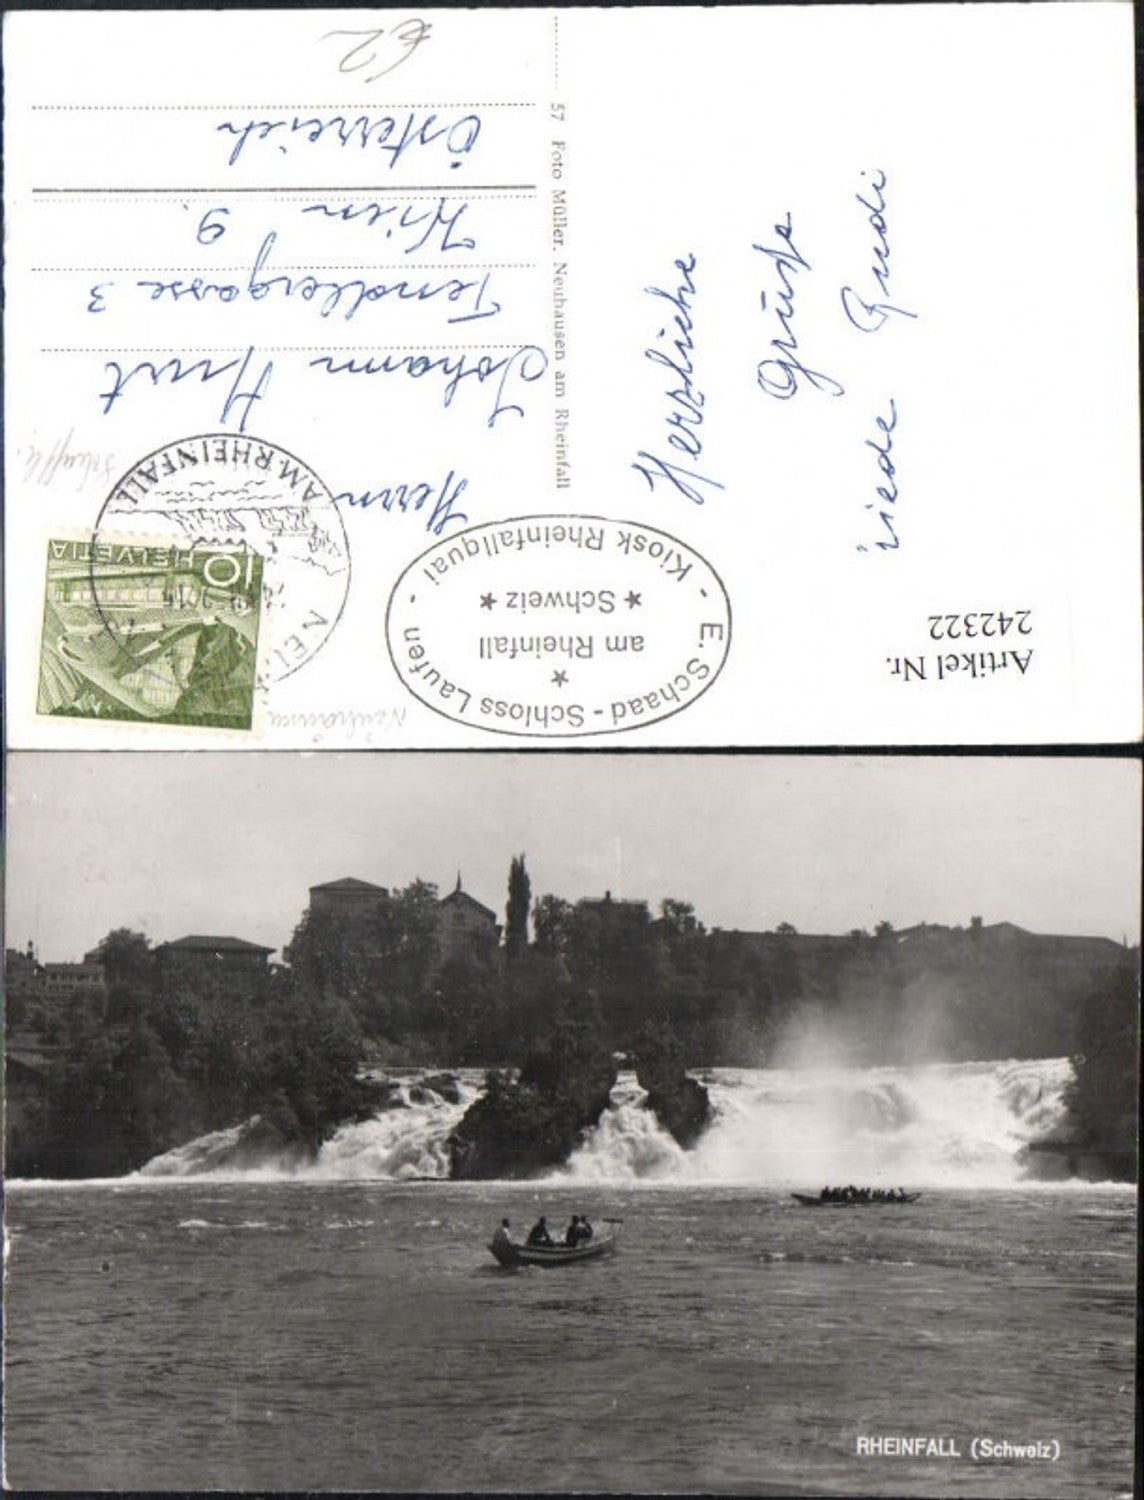 €2
Herrn
Johann Hurt
Tendlergasse 3
Wien 9.
Österreich
57 Foto Müller, Neuhausen am Rheinfall
Herzliche
Grüße
Rudi
Artikel Nr.
242322
E. Schaad - Schloss Laufen - Kiosk Rheinfallquai -
am Rheinfall
Schweiz
AM RHEINFALL
10 HELVETIA
RHEINFALL (Schweiz)